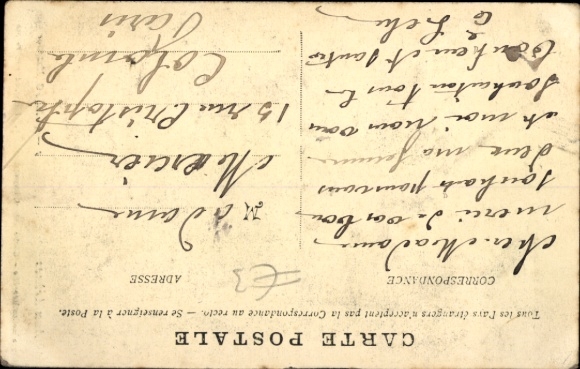 CARTE POSTALE
Tous les Pays étrangers n'acceptent pas la Correspondance au recto. — Se renseigner à la Poste.
CORRESPONDANCE
ADRESSE
€3
Cher Madame
merci de vos bon
souhait pour vous
deux ma femme
et moi nous vous
souhaiton tous le
bonheur et santé
Madame
Mercier
15 rue Cristophe
Colomb
Paris